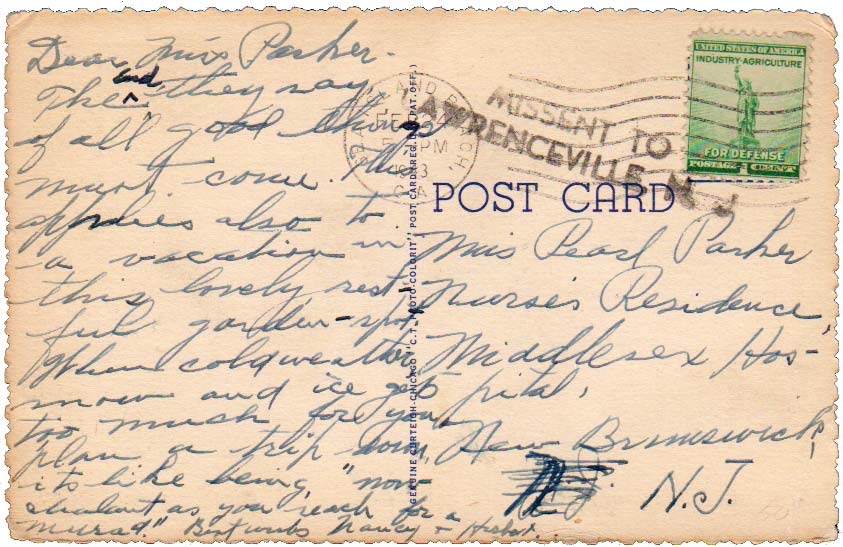 Dear Miss Parker -
The end "they say,"
of all good things
must come. This
applies also to
a vacation in
this lovely, rest-
ful garden-spot.
When cold weather,
snow and ice get
too much for you
plan a trip down,
its like being "non-
chalant as you reach for a
Murad." Best wishes Nancy &
MISSENT TO
LAWRENCEVILLE N. J.
FEB 24
PM
GA.
UNITED STATES OF AMERICA
INDUSTRY-AGRICULTURE
FOR DEFENSE
POSTAGE 1 CENT
POST CARD
Miss Pearl Parker
Nurse's Residence,
Middlesex Hos-
pital,
New Brunswick,
N.J.
GENUINE CURTEICH-CHICAGO "C.T. PHOTO-COLORIT" POST CARD (REG. U.S. PAT. OFF.)